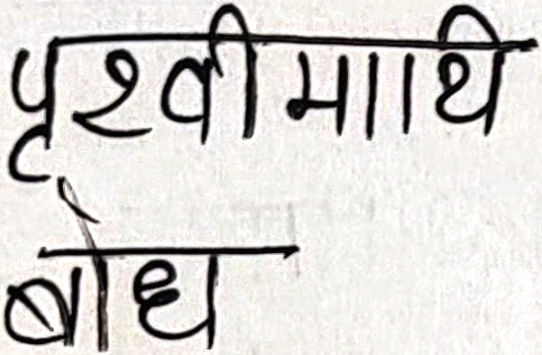 पृथ्वीमाथि
बोध